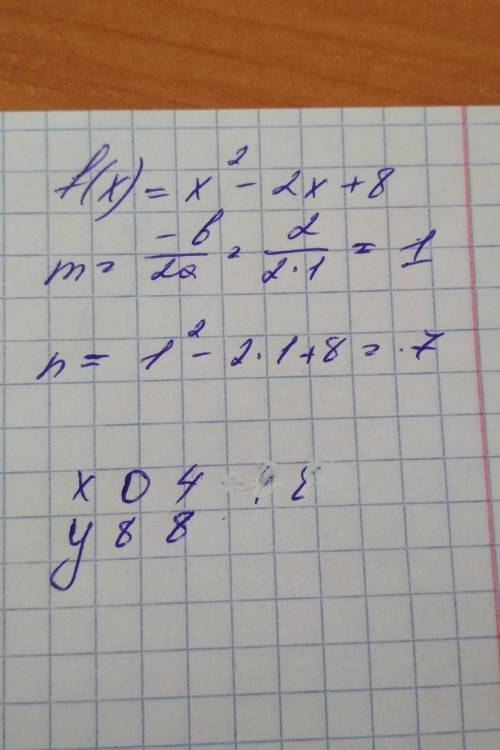 f(x) = x² - 2x + 8
m = -b/2a = 2/2·1 = 1
n = 1² - 2·1 + 8 = 7
x 0 4
y 8 8